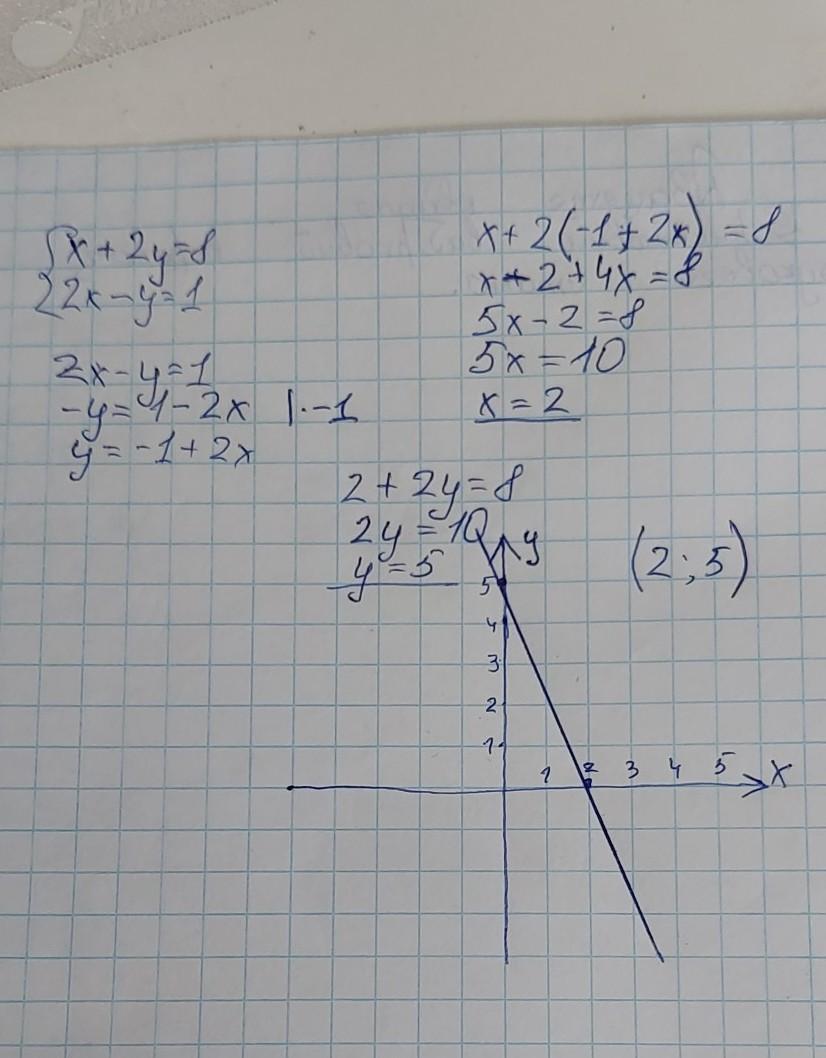 {x + 2y = 8
{2x - y = 1
2x - y = 1
-y = 1 - 2x | · -1
y = -1 + 2x
x + 2(-1 + 2x) = 8
x - 2 + 4x = 8
5x - 2 = 8
5x = 10
x = 2
2 + 2y = 8
2y = 10
y = 5
(2 ; 5)
y
5
4
3
2
1
1 2 3 4 5 x